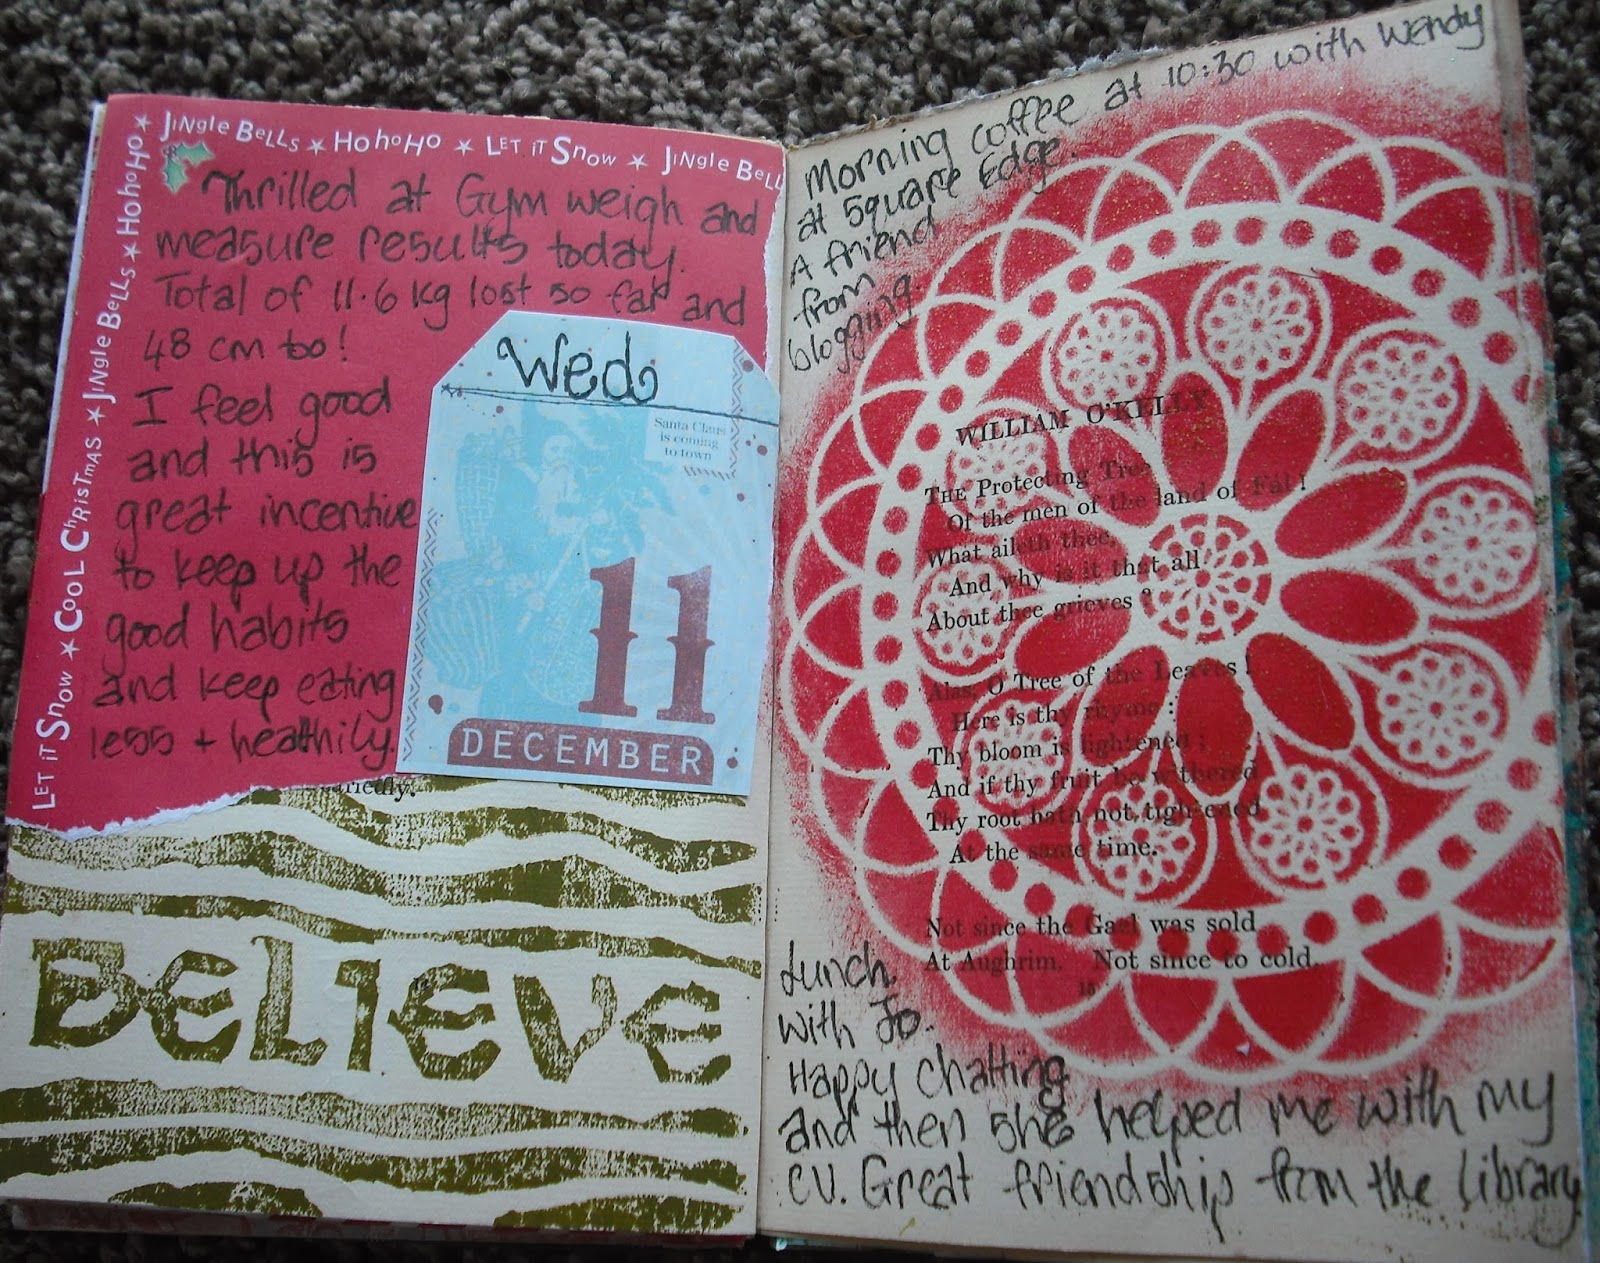 JINGLE BELLS ★ HoHoHO ★ LET iT SNOW ★ JINGLE BELL
LET iT SNOW ★ COOL CHRISTMAS ★ JINGLE BELLS ★ HoHoHO ★
Thrilled at Gym weigh and
measure results today.
Total of 11.6 kg lost so far and
48 cm too!
I feel good
and this is
great incentive
to keep up the
good habits
and keep eating
less + heathily.
Wed
Santa Claus
is coming
to town
11
DECEMBER
BELIEVE
Morning coffee at 10:30 with Wendy
at Square Edge.
A friend
from
blogging.
WILLIAM O'KELLY
THE Protecting Tree
Of the men of the land of Fál!
What aileth thee,
And why is it that all
About thee grieves?
Alas, O Tree of the Leaves!
Here is thy rhyme:
Thy bloom is lightened;
And if thy fruit be withered
Thy root hath not tightened
At the same time.
Not since the Gael was sold
At Aughrim. Not since to cold.
15
Lunch
with Jo.
Happy chatting
and then she helped me with my
CV. Great friendship from the Library